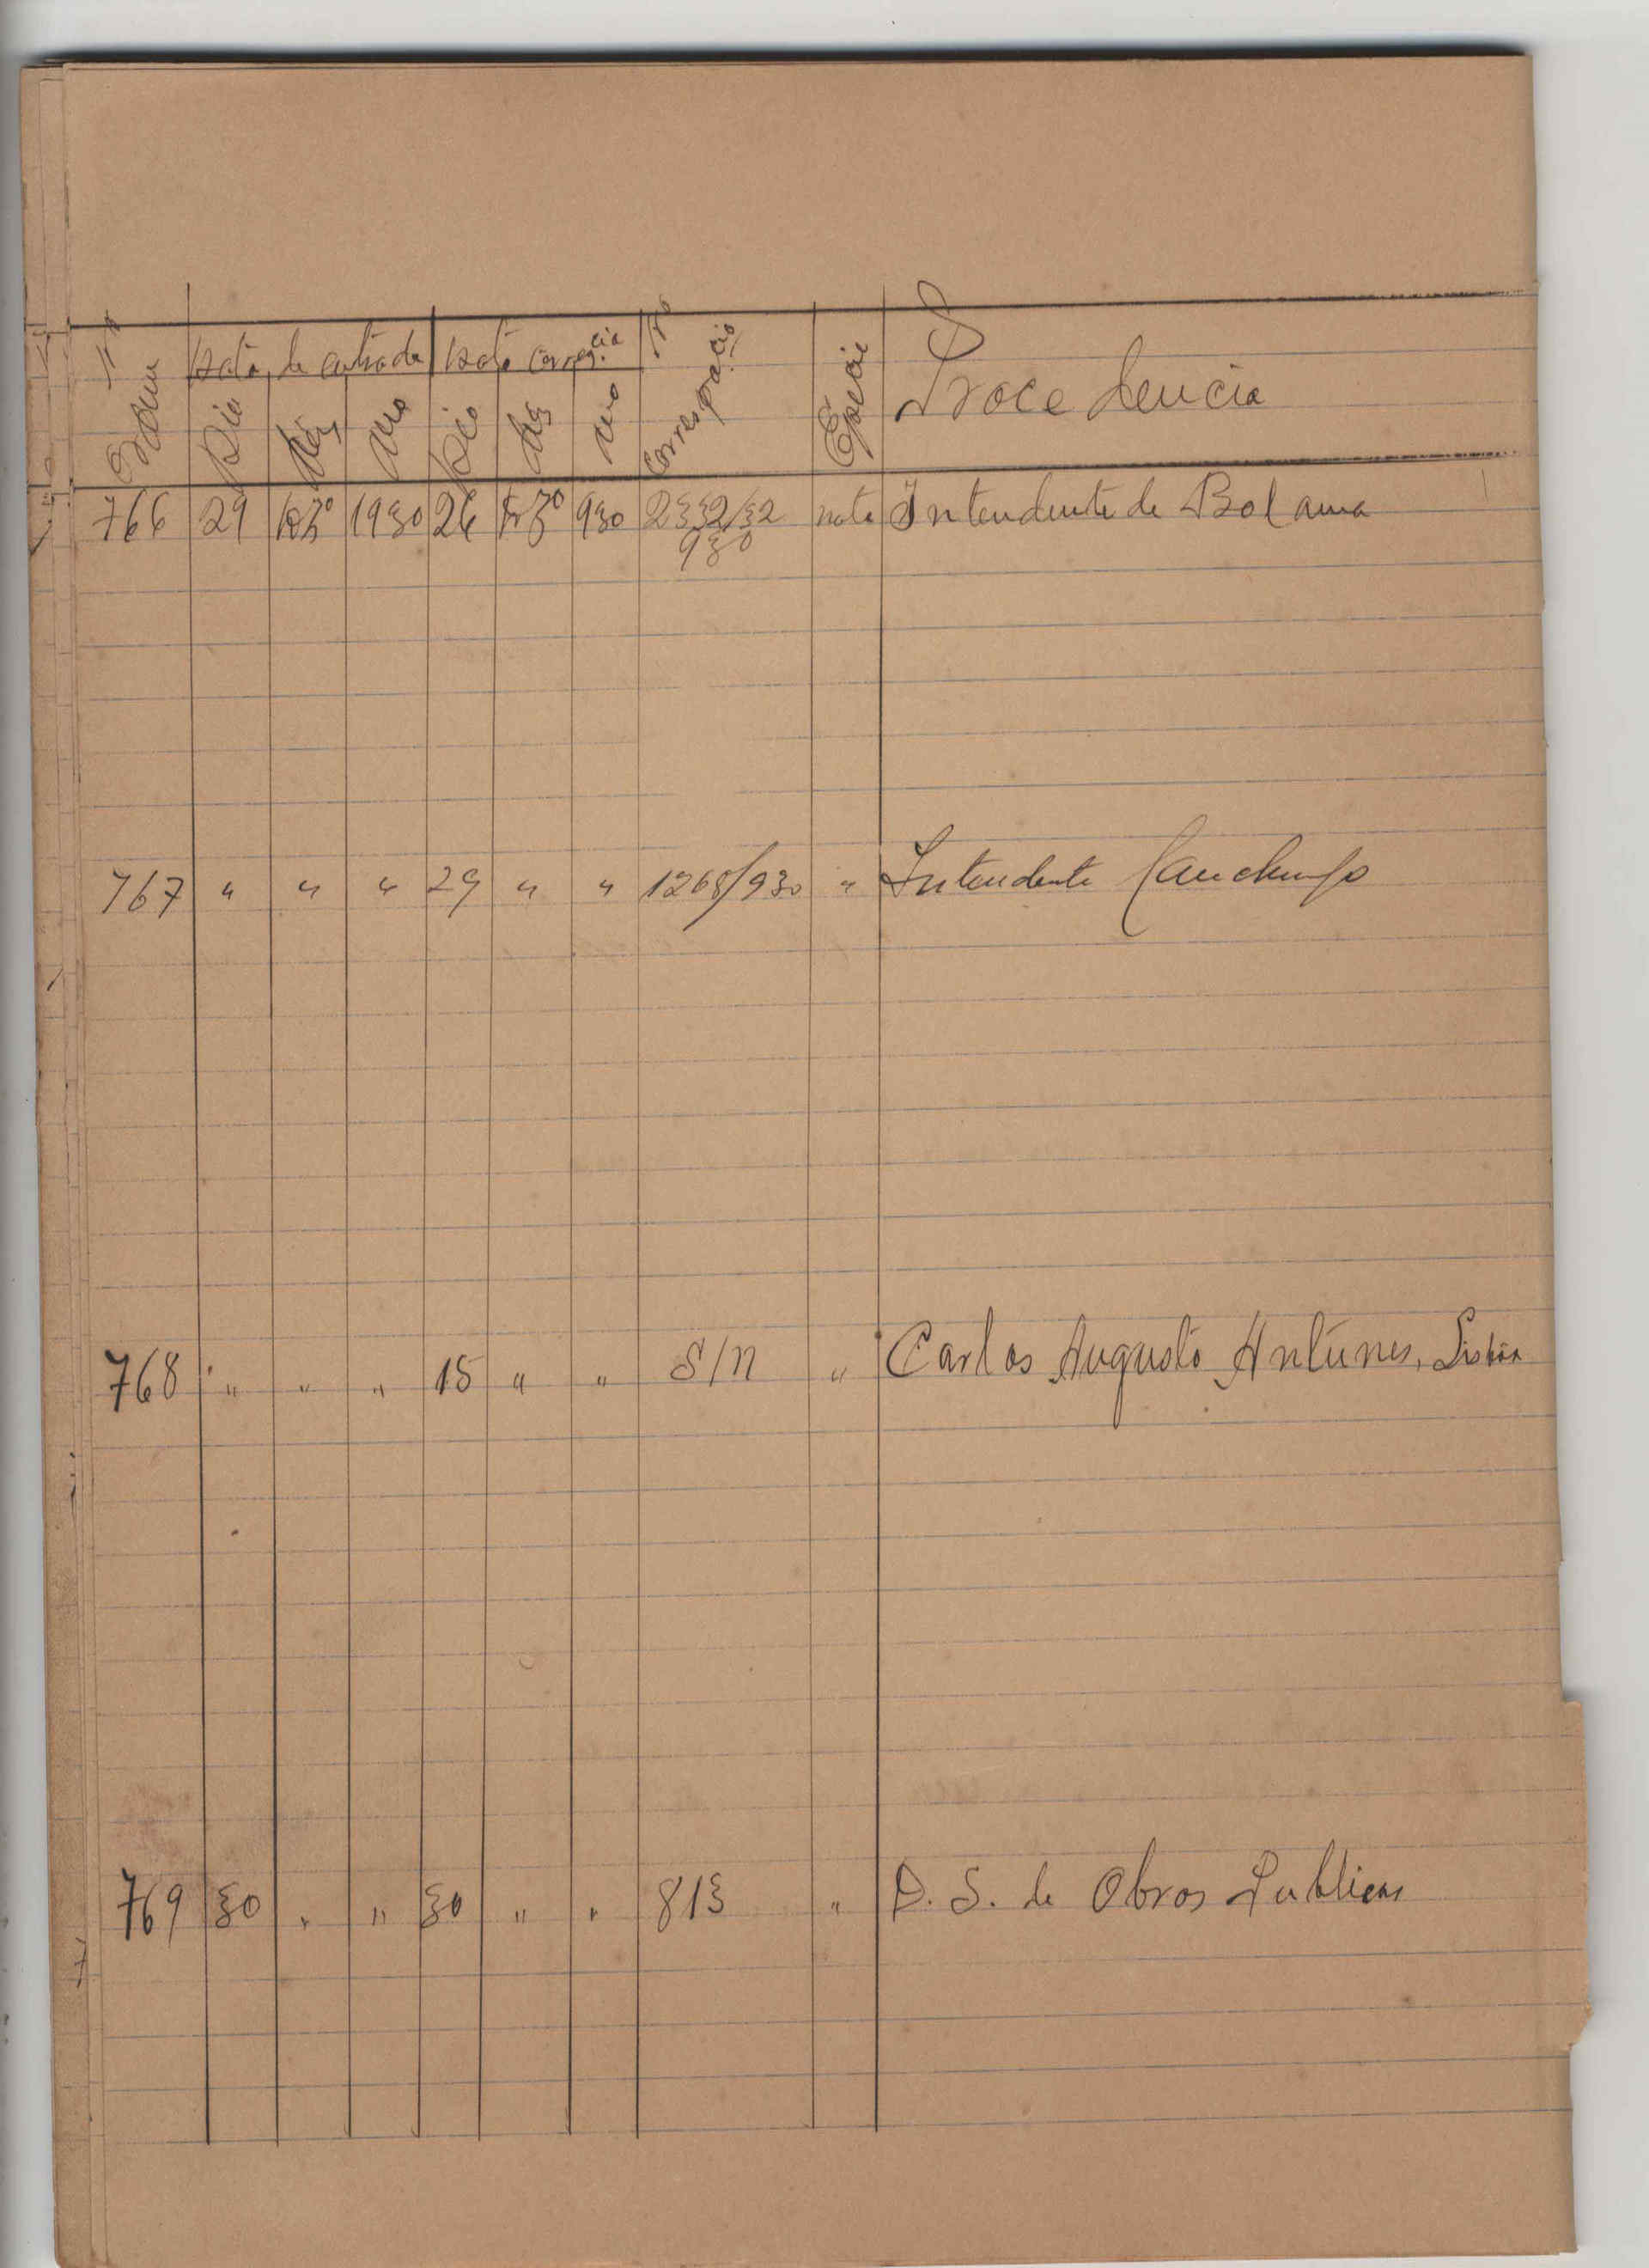 Nº Ordem | Data de entrada | Data corres.cia | Nº Corresp | Especie | Procedencia
Dia | Mês | Ano | Dia | Mês | Ano
766 | 29 | Dzº | 1930 | 26 | Dzº | 930 | 2332/32 | nota | Intendente de Bolama
930
767 | " | " | " | 29 | " | " | 1268/930 | " | Intendente Canchungo
768 | " | " | " | 15 | " | " | S/N | " | Carlos Augusto Antunes, Lisbôa
769 | 30 | " | " | 30 | " | " | 813 | " | D. S. de Obras Publicas